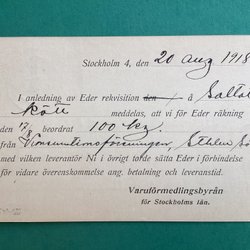 Stockholm 4, den 20 aug 1918
I anledning av Eder rekvisition den / å
kött meddelas, att vi för Eder räkning
den 17/8 beordrat 100 kg.
från
med vilken leverantör Ni i övrigt torde sätta Eder i förbindelse
för vidare överenskommelse ang. betalning och leveranstid.
Varuförmedlingsbyrån
för Stockholms län.